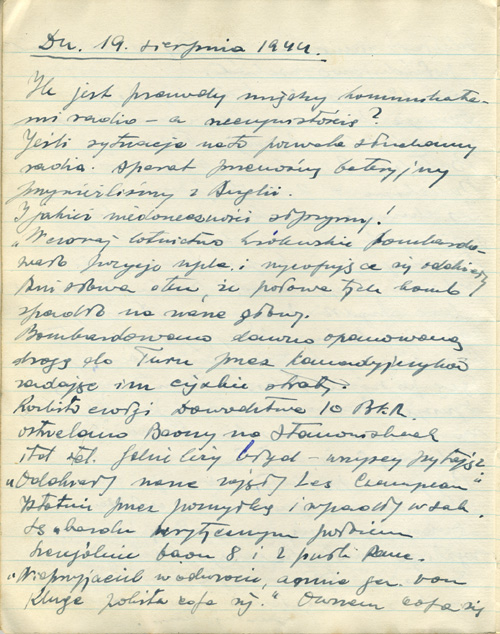 Dn. 19. sierpnia 1944.
Ile jest prawdy między komunikata-
mi radia – a rzeczywistością?
Jeśli sytuacja na to pozwala słuchamy
radia. Aparat przenośny bateryjny
przywieźliśmy z Anglii.
I jakież niedorzeczności słyszymy!
„Wczoraj lotnictwo królewskie bombardo-
wało pozycje npla. i wycofujące się oddziały
Ani słowa o tem, że połowa tych bomb
spadła na nasze głowy.
Bombardowano dawno opanowaną
drogę do Turu przez Kanadyjczyków
zadając im ciężkie straty.
Rozbito czołgi Dowództwa 10 BK.
ostrzelano Baony na stanowiskach
itd. itd. Gdzie leży błąd – wszyscy pytają?
„Oddziały nasze zajęły Les Champeaux"
Istotnie przez pomyłkę i wpadły w sak.
Są w bardzo krytycznym położeniu
szczególnie baon 8 i 2 pułk Panc.
„Nieprzyjaciel w odwrocie, armia gen. von
Kluge pobita cofa się." Owszem cofa się